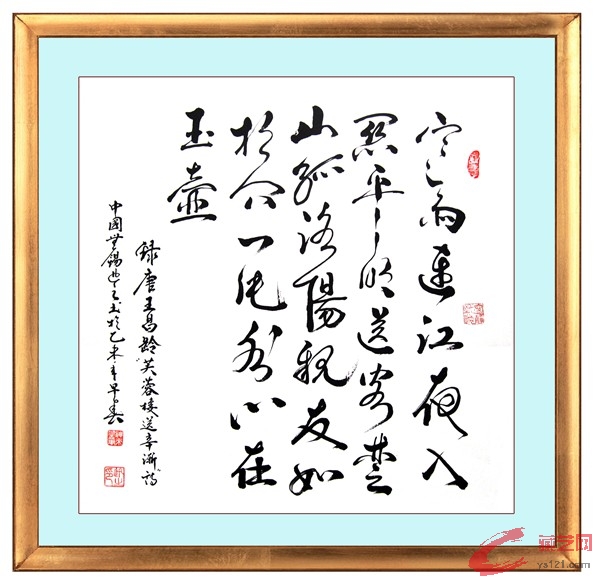 寒雨連江夜入
吳平明送客楚
山孤洛陽親友如
相問一片冰心在
玉壺
錄唐王昌齡芙蓉樓送辛漸詩
中國無錫書於乙未年早春
藏艺网
ys121.com